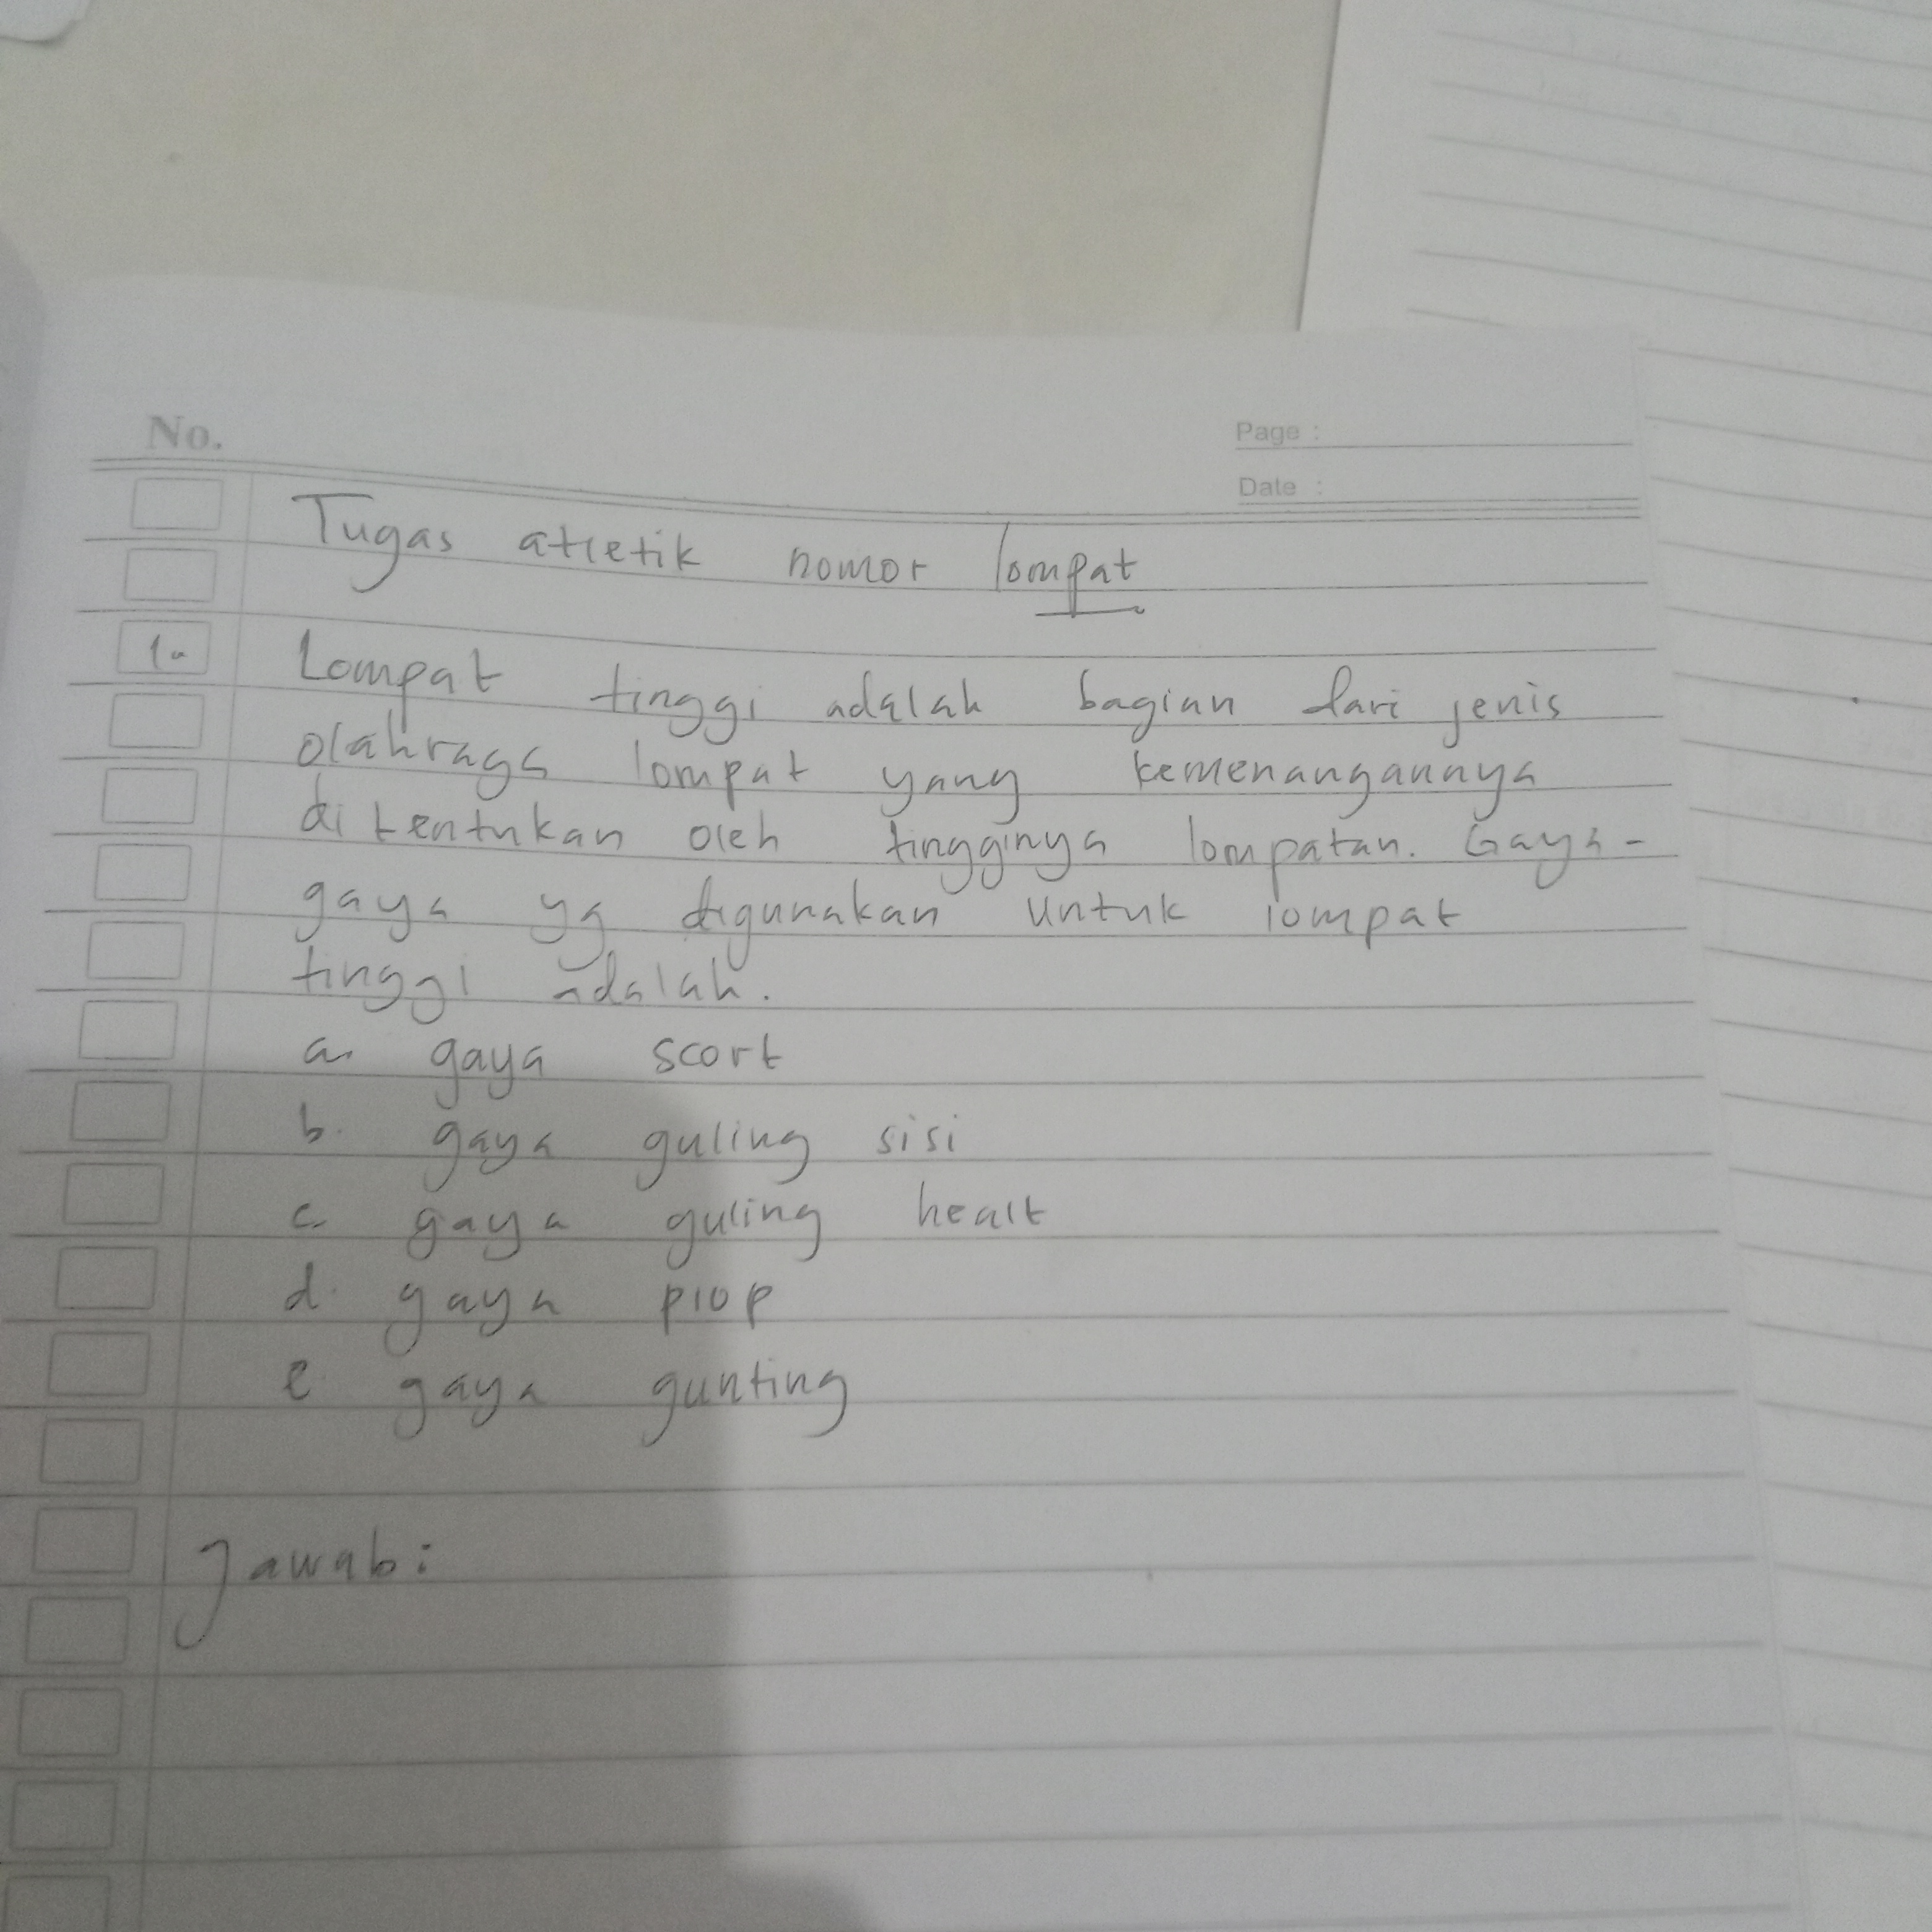 No.
Page :
Date :
Tugas atletik nomor lompat
1. Lompat tinggi adalah bagian dari jenis
olahraga lompat yang kemenangannya
ditentukan oleh tingginya lompatan. Gaya-
gaya yg digunakan untuk lompat
tinggi adalah.
a. gaya scort
b. gaya guling sisi
c. gaya guling healt
d. gaya plop
e. gaya gunting
Jawab: